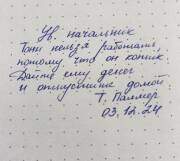 Ув. начальник
Тони нельзя работать,
потому что он котик.
Дайте ему денег
и отпустите домой
Т. Паллмер
03.12.24